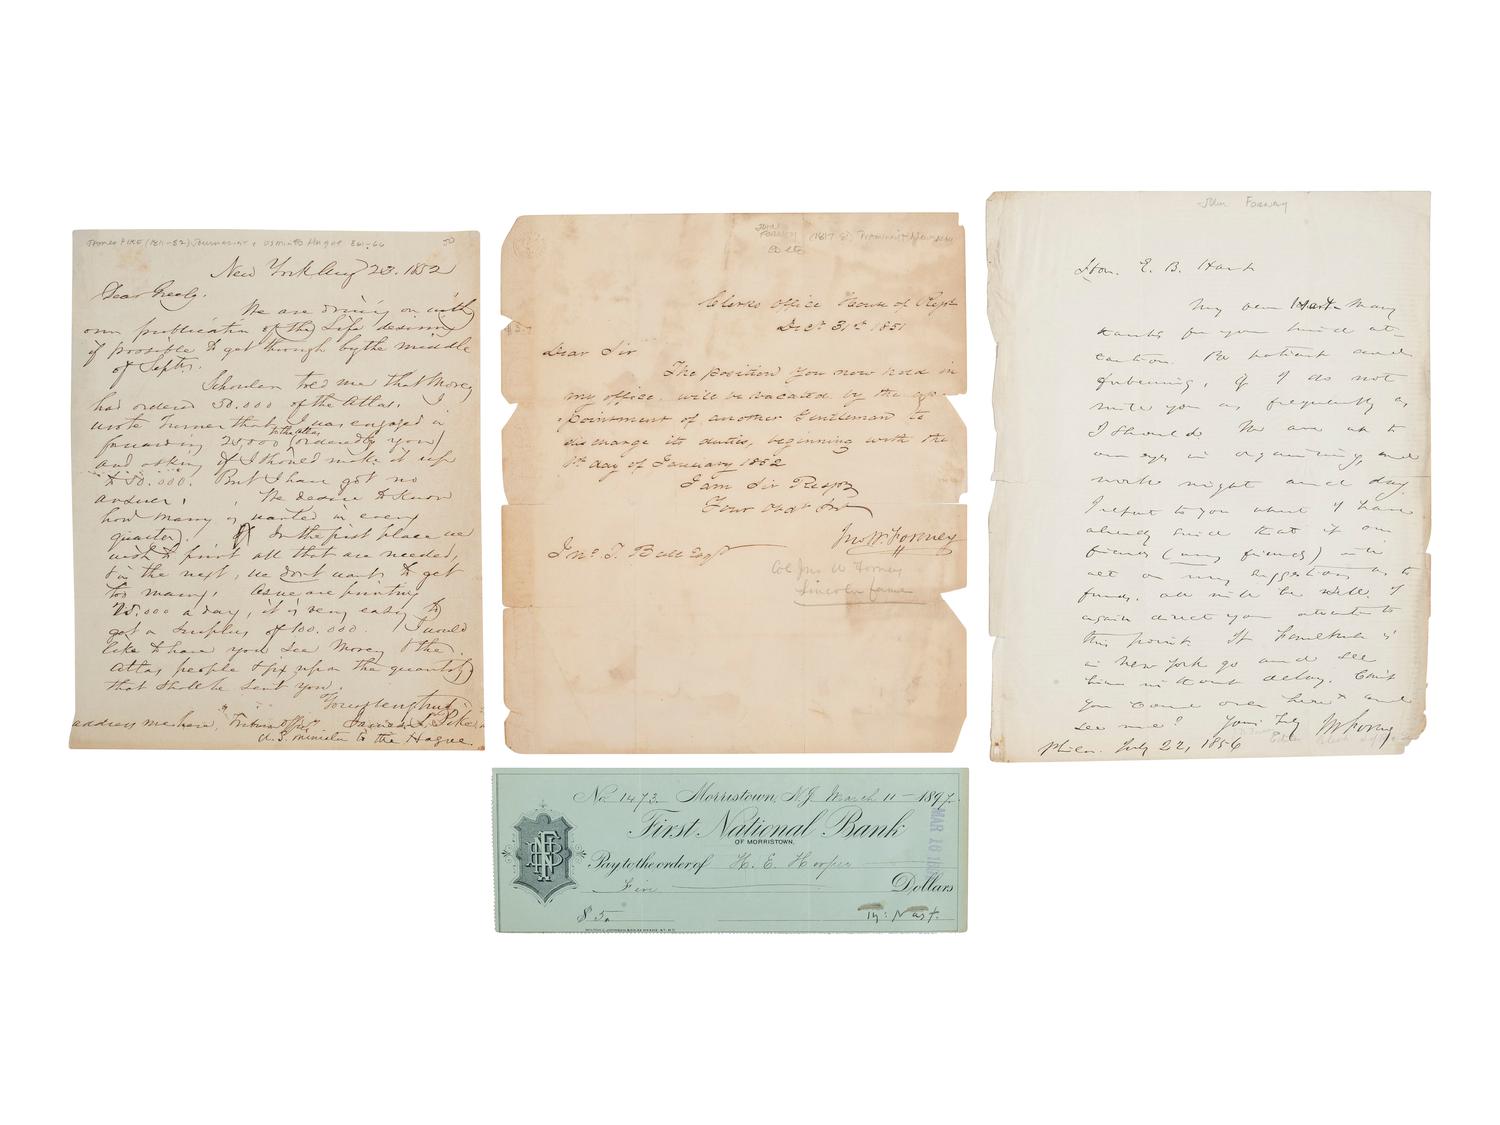 James PIKE (1811-82) Journalist & US Min to Hague 861-66
50
New York Aug 23. 1852
Dear Greely.
We are driving on with
our publication of the Life desiring
if possible to get through by the middle
of Septr.
told me that Morey
had ordered 50.000 of the Atlas. I
wrote Turner that I was engaged in
to the Atlas
forwarding 25,000 (ordered by you)
and asking if I should make it up
to 50.000. But I have got no
answer. We desire to know
how many is wanted in every
quarter. In the first place we
wish to print all that are needed,
& in the next, we dont want to get
too many. As we are printing
25.000 a day, it is very easy to
get a surplus of 100.000. I would
like to have you see Morey & the
Atlas people & fix upon the quantity
that shall be sent you.
Yours
James S. Pike
address me here, "Tribune Office"
U.S. minister to the Hague.
JOHN FORNEY (1817-
Clerks Office House of Reps
Dect. 31st 1851
Dear Sir
The position you now hold in
my office, will be vacated by the ap-
pointment of another Gentleman to
discharge its duties, beginning with the
1st day of January 1852
I am Sir Respy
Your Obdt Svt
Jno W Forney
Jno. T. Ball Esqr
Col Jno W Forney
Lincoln
John Forney
Hon. E. B. Hart
My dear Hart. Many
thanks for your kind at-
tention. Be patient and
forbearing, if I do not
write you as frequently as
I should. We are up to
our eyes in organizing, and
work night and day.
I repeat to you what I have
already said that if our
friends (my friends) will
act on my suggestions as to
funds, all will be well. I
again direct your attention to
this point. If is
in New York go and see
him without delay. Can't
you come over here and
see me? Yours Trly JW Forney
Phila. July 22, 1856
No. 1473 Morristown, N.J. March 11 - 1897.
First National Bank
OF MORRISTOWN.
Pay to the order of H. E. Hooper
Five Dollars
$ 5.
Th: Nast.
MAR 16 18